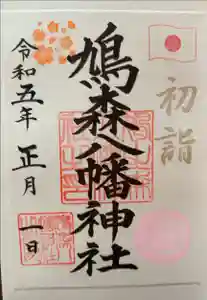 初詣
鳩森八幡神社
令和五年正月一日